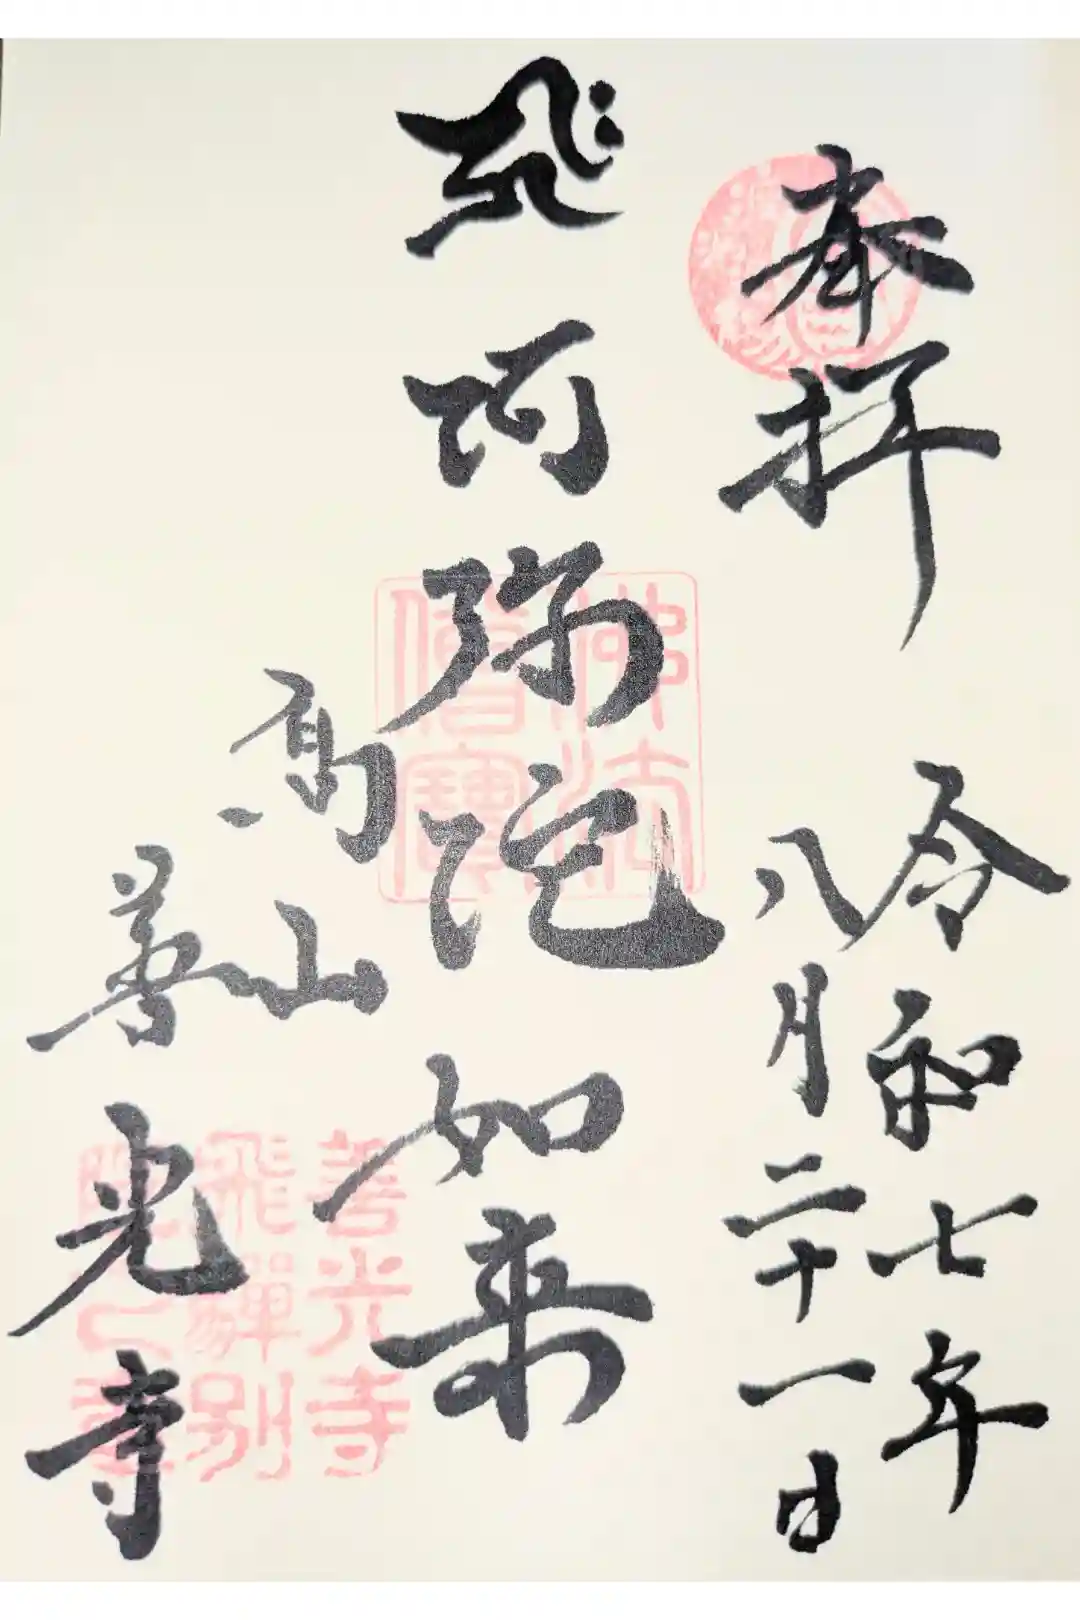 奉拝
令和七年
八月二十一日
𑖮𑖿𑖨𑖱𑖾
阿弥陀如来
佛法
僧寳
高山
善光寺
善光寺
飛騨別
院之章